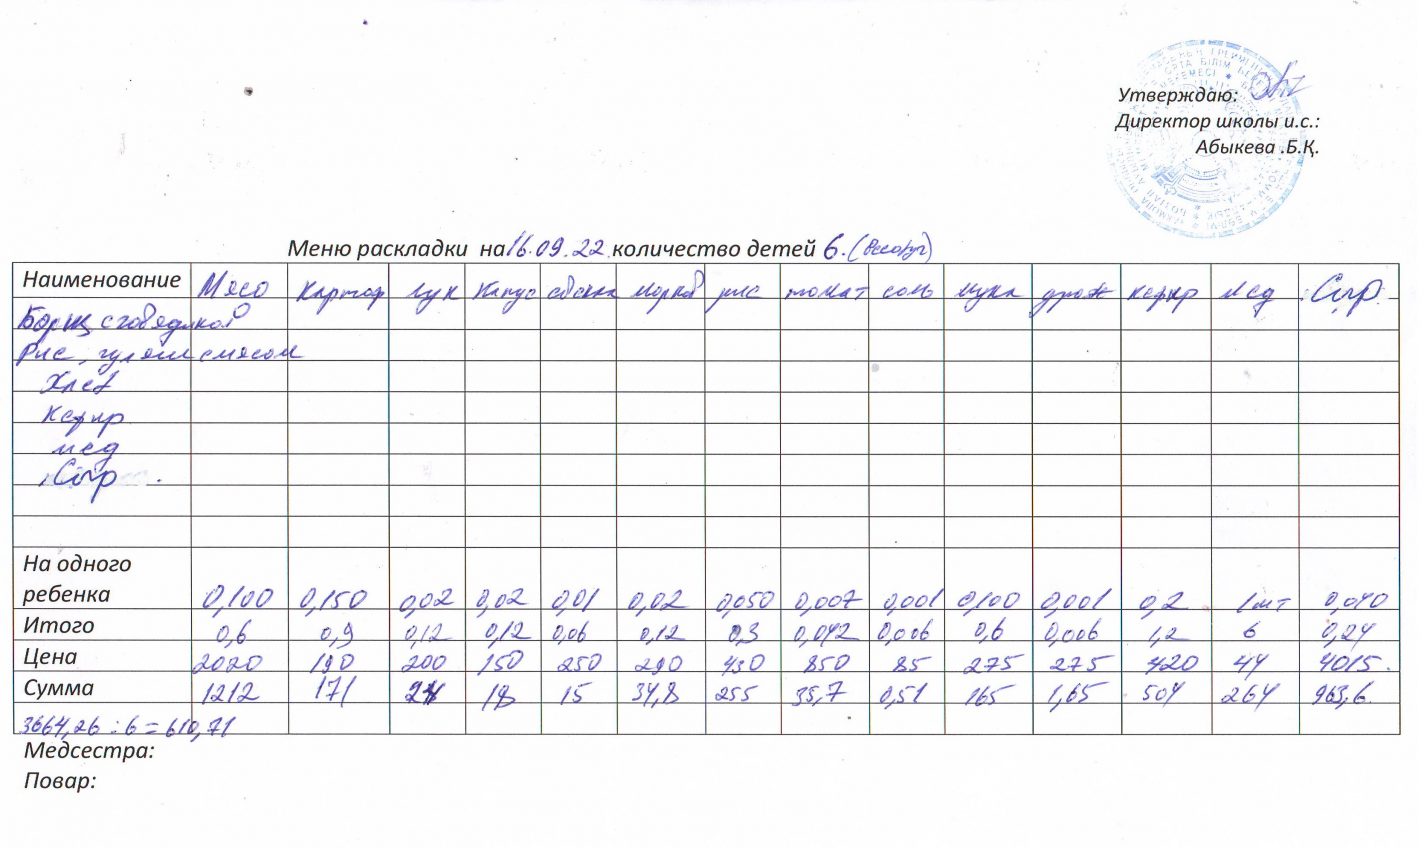 Утверждаю:
Директор школы и.с.:
Абыкева .Б.Қ.
Меню раскладки на 16.09.22. количество детей 6.
Наименование Мясо картоф лук капус свекла морков рис томат соль мука дрож кефир мед Сыр
Борщ с говядиной
Рис, гуляш с мясом
Хлеб
кефир
мед
Сыр
На одного
ребенка 0,100 0,150 0,02 0,02 0,01 0,02 0,050 0,007 0,001 0,100 0,001 0,2 1шт 0,040
Итого 0,6 0,9 0,12 0,12 0,06 0,12 0,3 0,042 0,006 0,6 0,006 1,2 6 0,24
Цена 2020 190 200 150 250 290 850 85 275 275 420 44 4015.
Сумма 1212 171 24 18 15 34,8 255 35,7 0,51 165 1,65 504 264 963,6.
3664,26 : 6 = 610,71
Медсестра:
Повар: